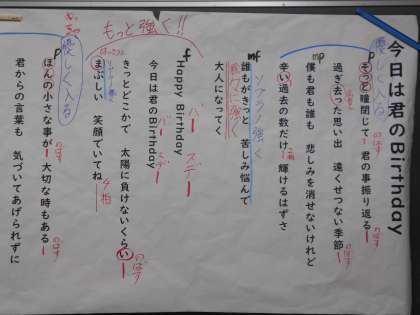 今日は君のBirthday
優しく入る
p
そっと瞳閉じて 君の事振り返る
のばす
過ぎ去った思い出 遠くせつない季節
のばす
mp
僕も君も誰も 悲しみを消せないけれど
辛い過去の数だけ 輝けるはずさ
ソプラノ強く
mf
誰もがきっと 苦しみ悩んで
大人になってく
もっと強く!!
f
Happy Birthday
バー
スデー
今日は君のBirthday
バー
スデー
きっとどこかで 太陽に負けないくらい
のばす
まぶしい 笑顔でいてね
4拍
優しく入る
p
ほんの小さな事が 大切な時もある
のばす
のばす
君からの言葉も 気づいてあげられずに